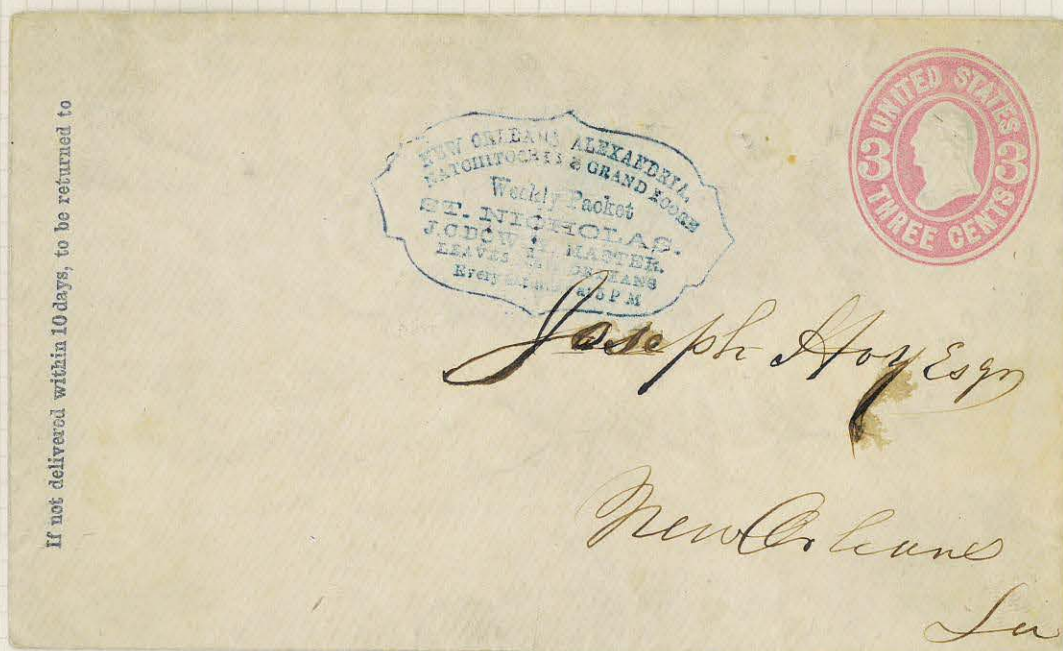 If not delivered within 10 days, to be returned to
NEW ORLEANS ALEXANDRIA,
NATCHITOCHES & GRAND ECORE
Weekly Packet
ST. NICHOLAS.
J. C. DOW MASTER.
LEAVES ORLEANS
Every at 5 P M
UNITED STATES
3 3
THREE CENTS
Joseph Hoy Esqr
New Orleans
La